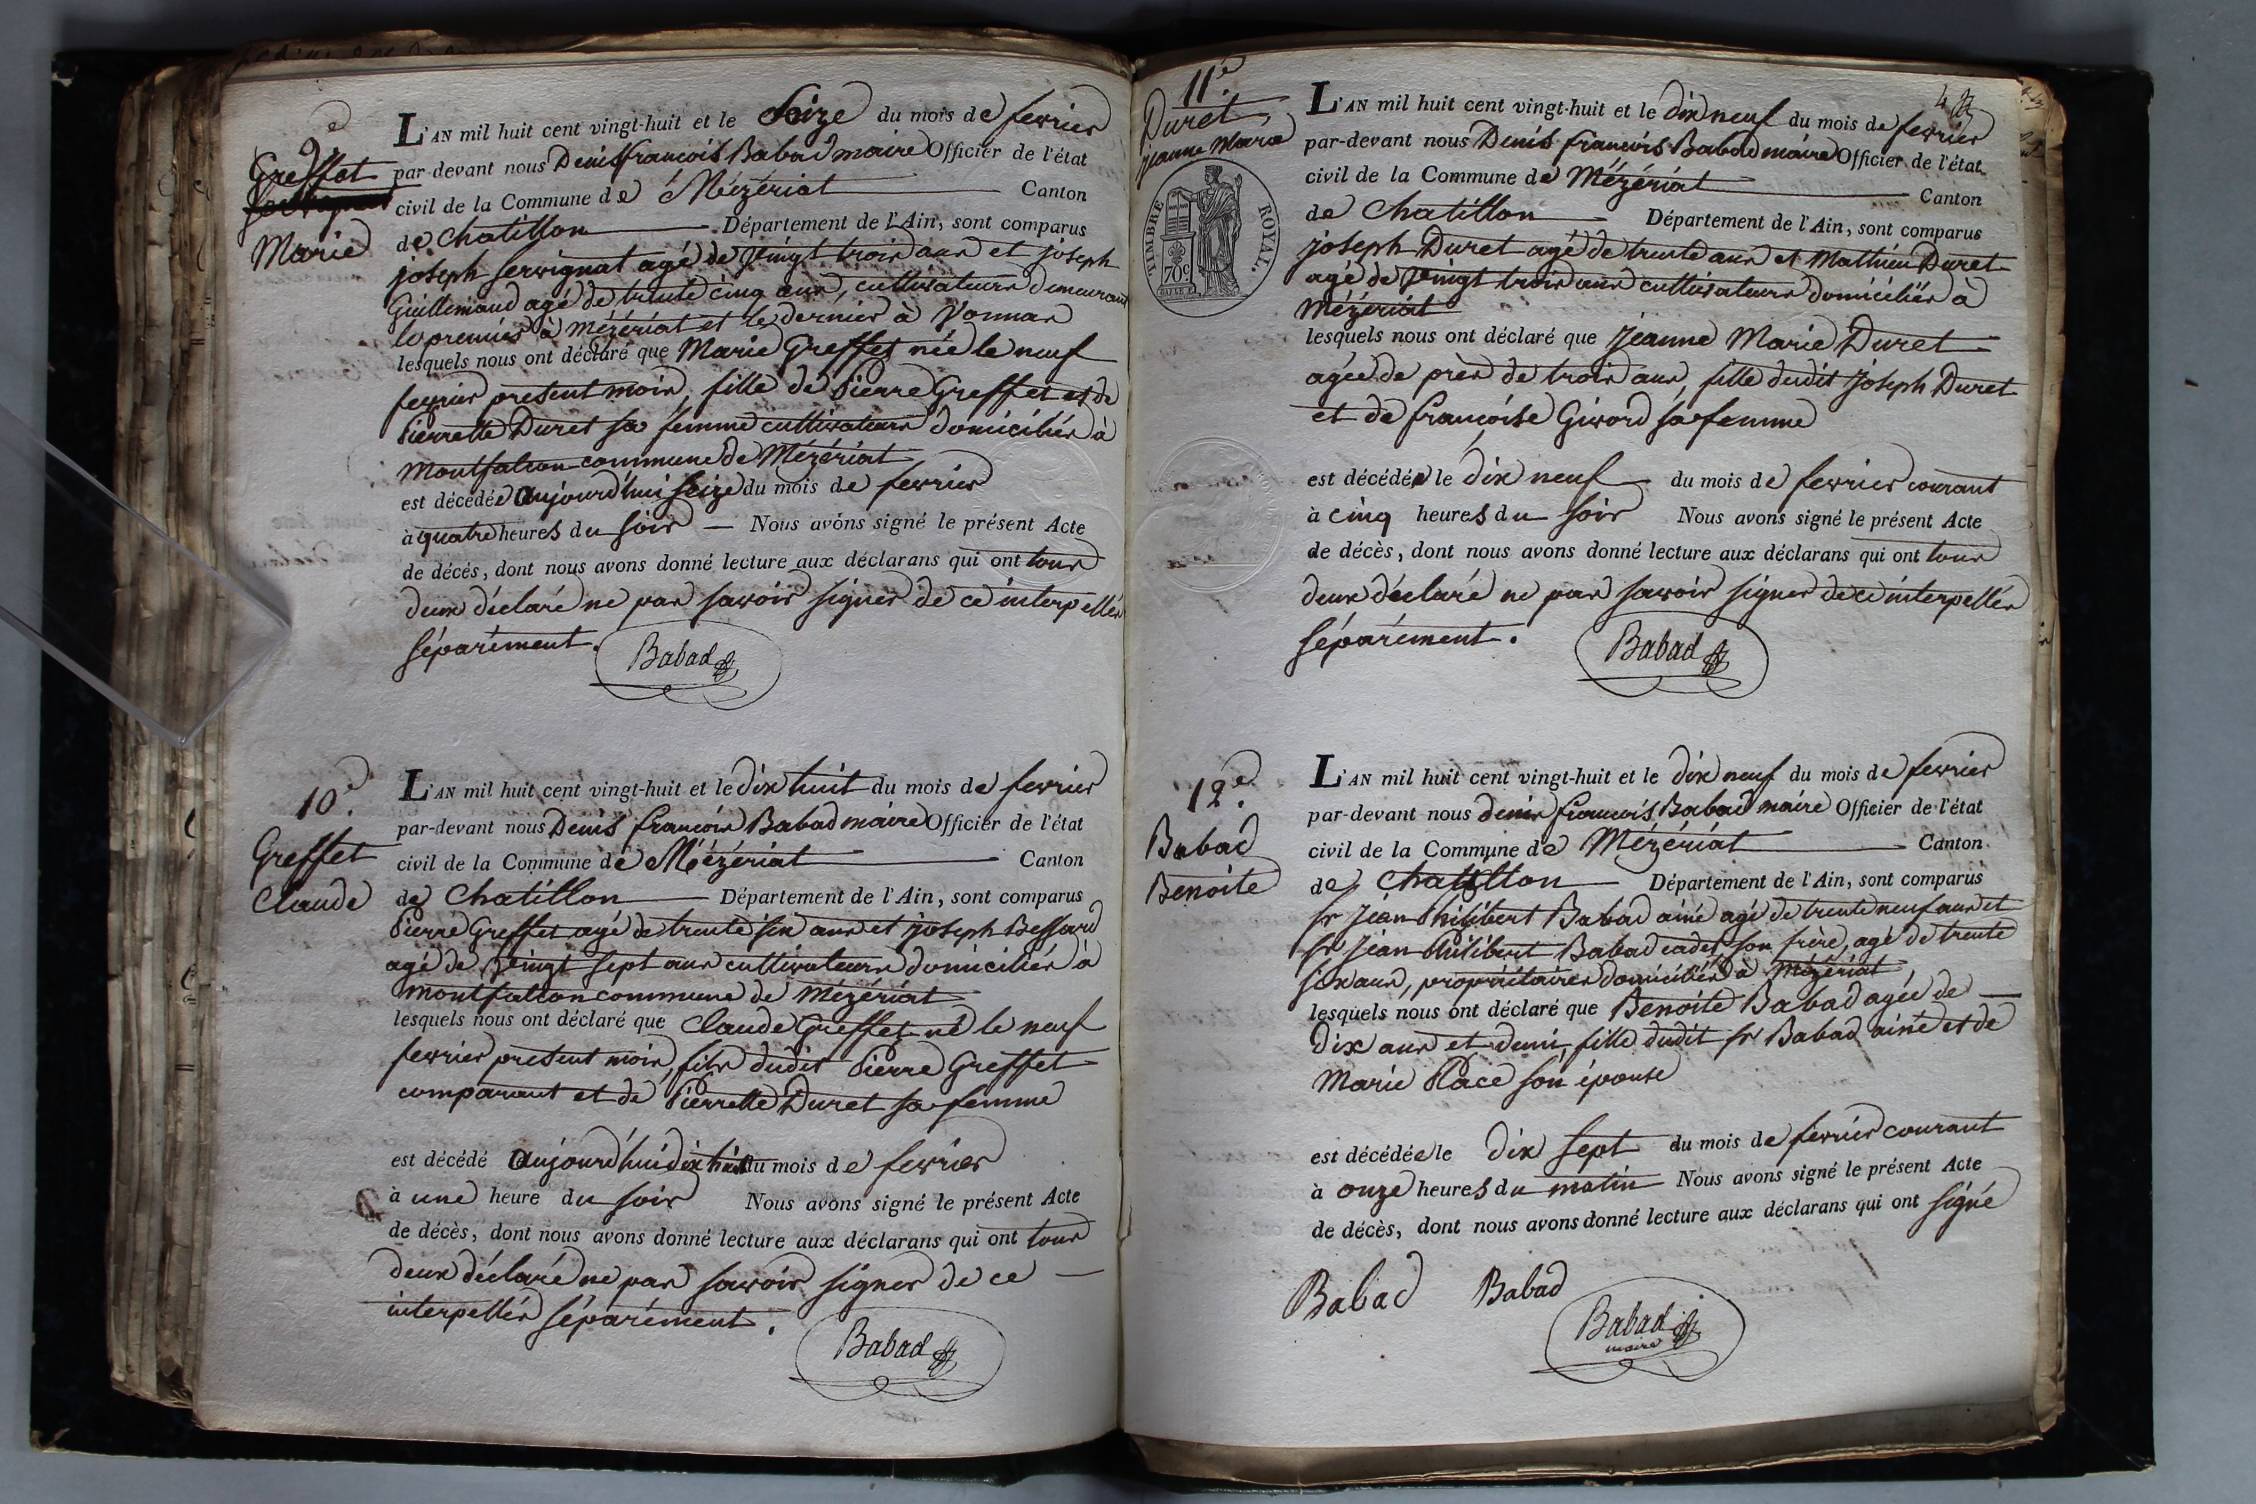 9e
Greffet
Marie
L'AN mil huit cent vingt-huit et le Seize du mois de fevrier
par-devant nous Denis françois Babad maire Officier de l'état
civil de la Commune de Mézériat Canton
de Chatillon Département de l'Ain, sont comparus
joseph servignat agé de vingt trois ans et joseph
Guillemaud agé de trente cinq ans, cultivateurs demeurant
le premier à Mézériat et le dernier à Vonnas
lesquels nous ont déclaré que Marie Greffet née le neuf
fevrier present mois, fille de Pierre Greffet et de
Pierrette Duret sa femme cultivateurs domiciliés à
Montfalcon commune de Mézériat
est décédée aujourd'hui seize du mois de fevrier
à quatre heures du soir — Nous avons signé le présent Acte
de décès, dont nous avons donné lecture aux déclarans qui ont tous
deux déclaré ne pas savoir signer de ce interpellés
séparément.
Babad
10e.
Greffet
Claude
L'AN mil huit cent vingt-huit et le dix huit du mois de fevrier
par-devant nous Denis françois Babad maire Officier de l'état
civil de la Commune de Mézériat Canton
de Chatillon Département de l'Ain, sont comparus
Pierre Greffet agé de trente six ans et joseph Beffard
agé de vingt sept ans cultivateurs domiciliés à
Montfalcon commune de Mézériat
lesquels nous ont déclaré que Claude Greffet né le neuf
fevrier present mois, fils dudit Pierre Greffet
comparant et de Pierrette Duret sa femme
est décédé aujourd'hui dix huit du mois de fevrier
à une heure du soir Nous avons signé le présent Acte
de décès, dont nous avons donné lecture aux déclarans qui ont tous
deux déclaré ne pas savoir signer de ce —
interpellés séparément.
Babad
4
11e.
Duret
jeanne Marie
TIMBRE ROYAL.
70c
L'AN mil huit cent vingt-huit et le dix neuf du mois de fevrier
par-devant nous Denis françois Babad maire Officier de l'état
civil de la Commune de Mézériat Canton
de Chatillon Département de l'Ain, sont comparus
joseph Duret agé de trente ans et Mathieu Duret
agé de vingt trois ans cultivateurs domiciliés à
Mézériat
lesquels nous ont déclaré que Jeanne Marie Duret
agée de près de trois ans, fille dudit Joseph Duret
et de françoise Girord sa femme
est décédée le dix neuf du mois de fevrier courant
à cinq heures du soir Nous avons signé le présent Acte
de décès, dont nous avons donné lecture aux déclarans qui ont tous
deux déclaré ne pas savoir signer de ce interpellés
séparément.
Babad
12e.
Babad
Benoite
L'AN mil huit cent vingt-huit et le dix neuf du mois de fevrier
par-devant nous denis françois Babad maire Officier de l'état
civil de la Commune de Mézériat Canton
de Chatillon Département de l'Ain, sont comparus
sr Jean Philibert Babad ainé agé de trente neuf ans et
sr Jean Philibert Babad cadet son frère, agé de trente
six ans, propriétaires domiciliés à Mézériat
lesquels nous ont déclaré que Benoite Babad agée de —
dix ans et demi, fille dudit sr Babad ainé et de
Marie Place son épouse
est décédée le dix sept du mois de fevrier courant
à onze heures du matin Nous avons signé le présent Acte
de décès, dont nous avons donné lecture aux déclarans qui ont signé
Babad Babad
Babad
maire